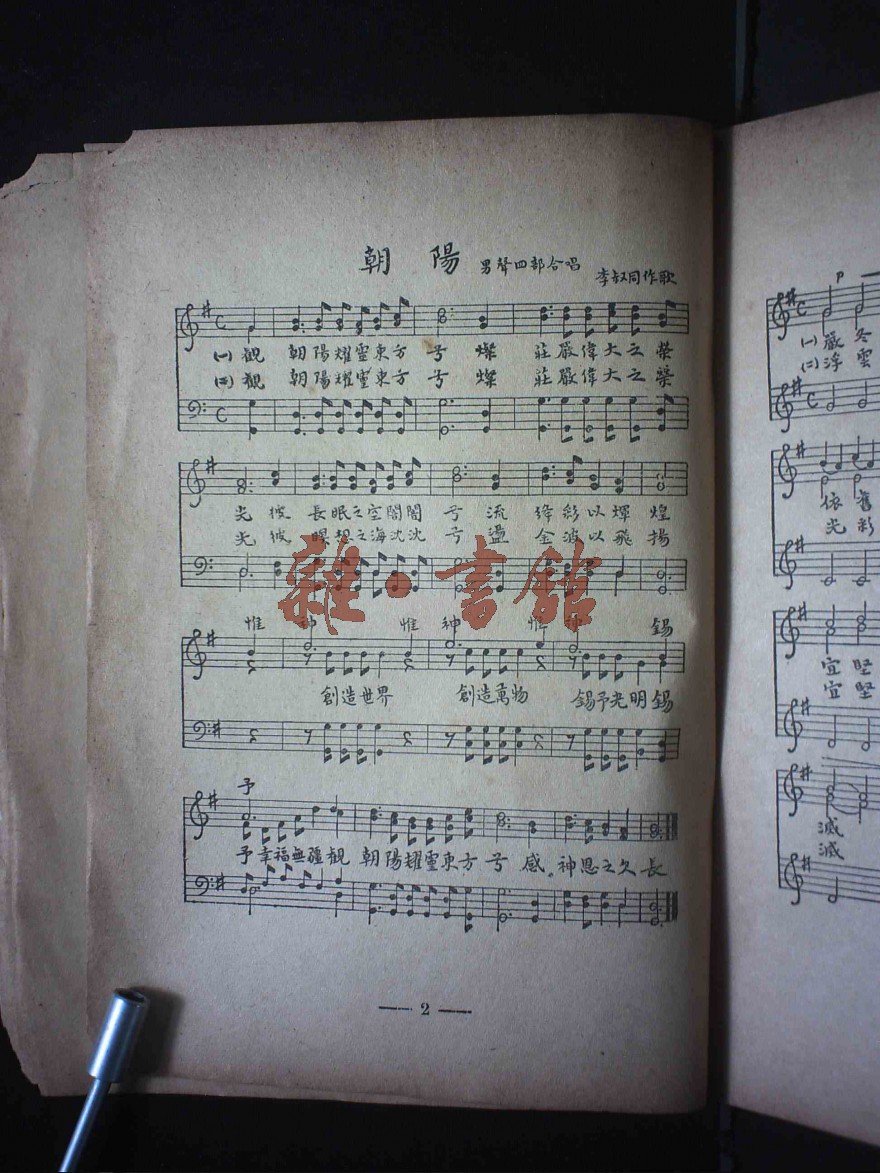 朝陽 男聲四部合唱 李叔同作歌
(一)觀 朝陽耀靈東方 兮 燦 莊嚴偉大之榮
(二)觀 朝陽耀靈東方 兮 燦 莊嚴偉大之榮
光 彼 長眠之空闇闇 兮 流 絳彩以輝煌
光 彼 瞑想之海沈沈 兮 盪 金波以飛揚
惟 神 惟 神 惟 神 錫
創造世界 創造萬物 錫予光明 錫
予
予幸福無疆觀 朝陽耀靈東方 兮 感 神恩之久長
— 2 —
雜·書館
P
(一)嚴冬
(二)浮雲
依舊
光彩
宜堅
宜堅
滅
滅